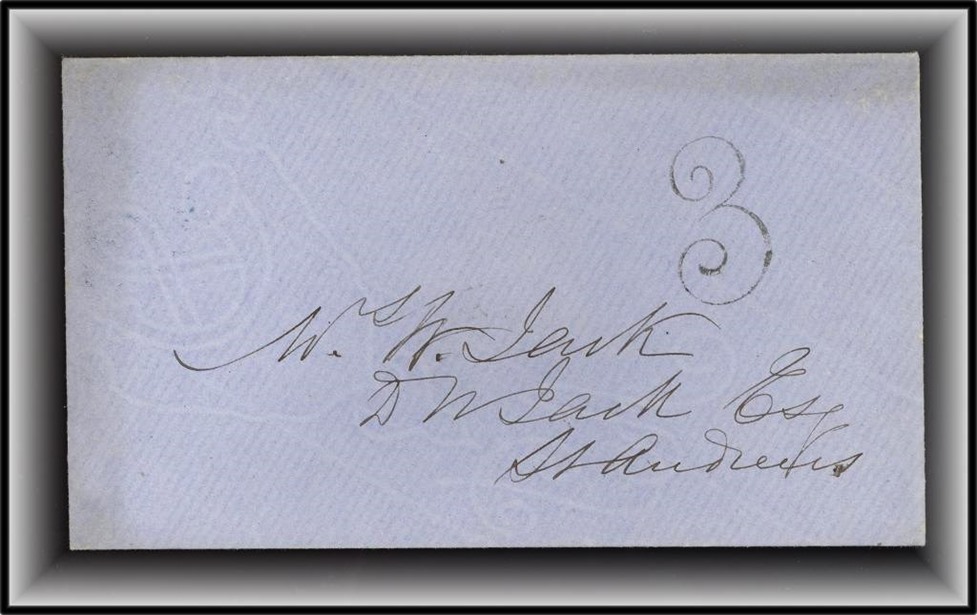 3
Mrs W. Jack
D W Jack Esq
St Andrews